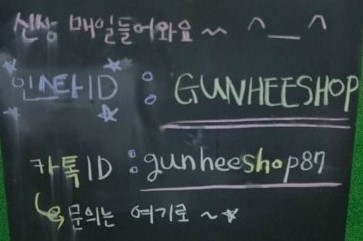 신상 매일들어와요 ~~ ^__^
인스타ID : GUNHEESHOP
카톡ID : gunheeshop87
문의는 여기로 ~☆